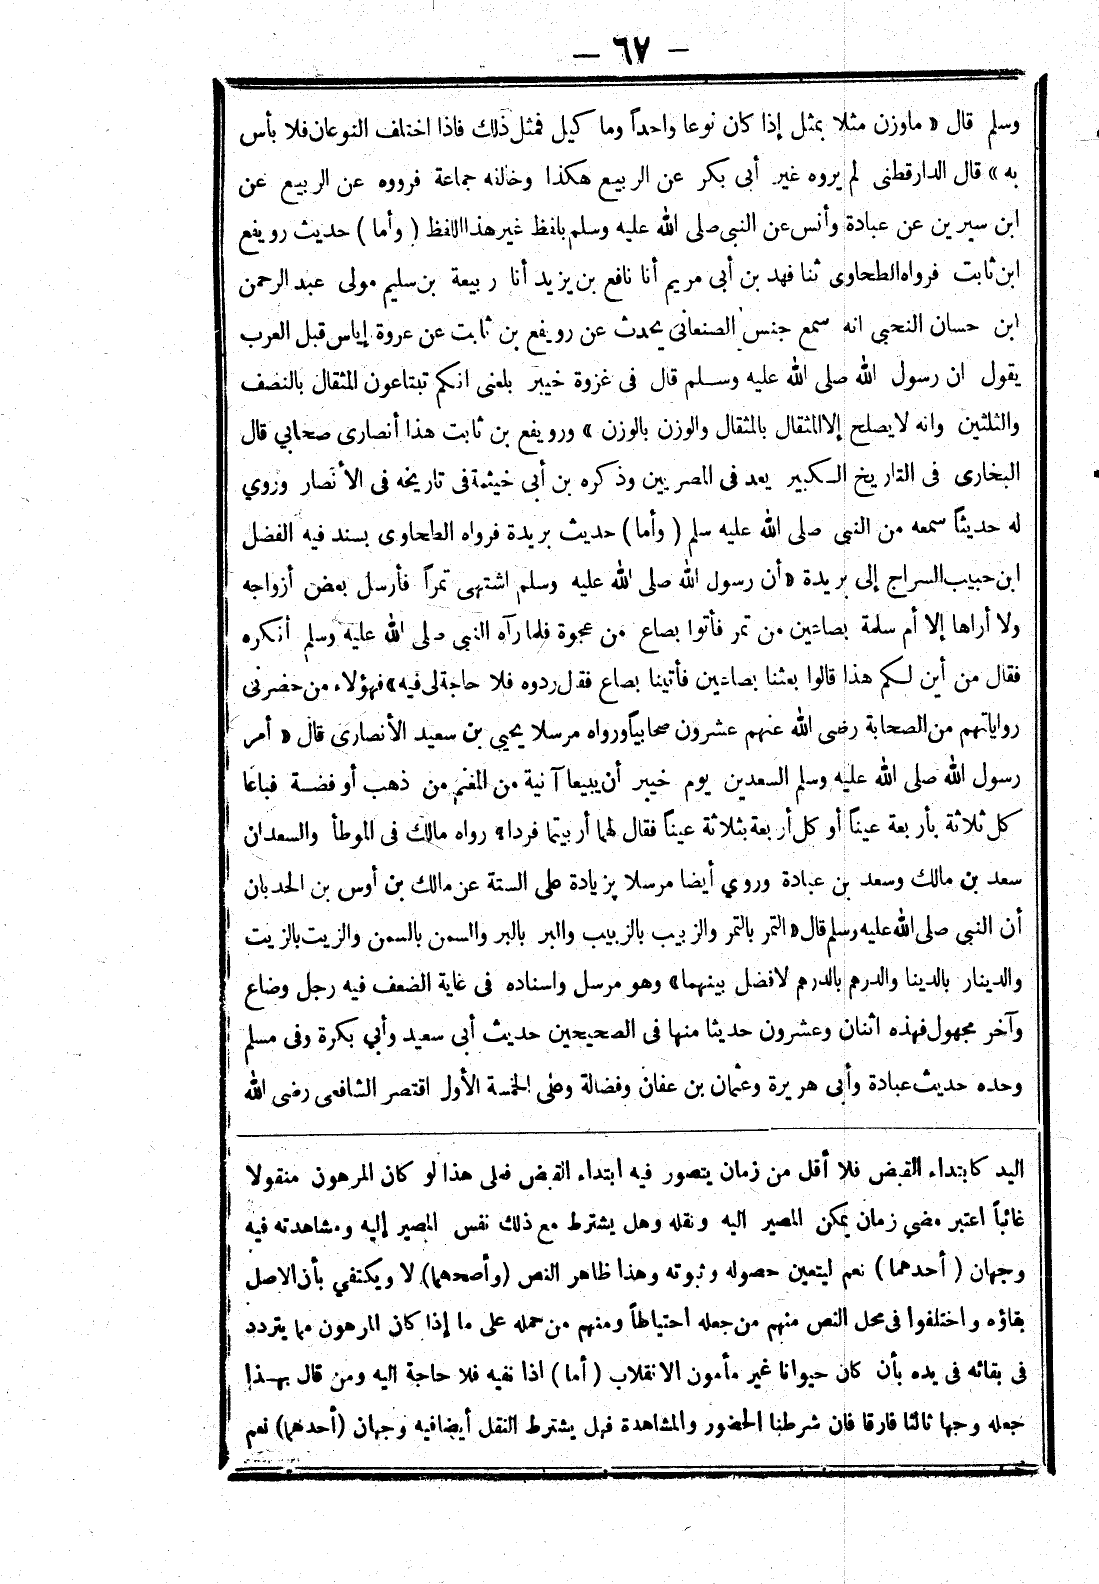 — ٦٧ —
وسلم قال « ماوزن مثلا بمثل إذا كان نوعا واحداً وما كيل فمثل ذلك فاذا اختلف النوعان فلا بأس
به » قال الدارقطنى لم يروه غير أبى بكر عن الربيع هكذا وخالفه جماعة فرووه عن الربيع عن
ابن سيرين عن عبادة وأنس عن النبى صلى الله عليه وسلم بلفظ غير هذا اللفظ ( وأما ) حديث رويفع
ابن ثابت فرواه الطحاوى ثنا فهد بن أبى مريم أنا نافع بن يزيد أنا ربيعة بن سليم مولى عبد الرحمن
ابن حسان النحبى انه سمع جنس الصنعانى يحدث عن رويفع بن ثابت عن عروة إياس قبل العرب
يقول ان رسول الله صلى الله عليه وسلم قال فى غزوة خيبر بلغنى انكم تبتاعون المثقال بالنصف
والثلثين وانه لا يصلح إلا المثقال بالمثقال والوزن بالوزن » ورويفع بن ثابت هذا أنصارى صحابي قال
البخارى فى التاريخ الكبير يعد فى المصريين وذكره بن أبى خيثمة فى تاريخه فى الأنصار وزوي
له حديثاً سمعه من النبى صلى الله عليه سلم ( وأما ) حديث بريدة فرواه الطحاوى بسند فيه الفضل
ابن حبيب السراج إلى بريدة « أن رسول الله صلى الله عليه وسلم اشتهى تمراً فأرسل بعض أزواجه
ولا أراها إلا أم سلمة بصاعين من تمر فأتوا بصاع من عجوة فلما رآه النبى صلى الله عليه وسلم أنكره
فقال من أين لكم هذا قالوا بعثنا بصاعين فأتينا بصاع فقال ردوه فلا حاجة لى فيه » فهؤلاء من حضرنى
رواياتهم من الصحابة رضى الله عنهم عشرون صحابياً ورواه مرسلا يحيي بن سعيد الأنصارى قال « أمر
رسول الله صلى الله عليه وسلم السعدين يوم خيبر أن يبيعا آنية من المغنم من ذهب أو فضة فباعا
كل ثلاثة بأربعة عيناً أو كل أربعة بثلاثة عيناً فقال لهما أربيتما فردا » رواه مالك فى الموطأ والسعدان
سعد بن مالك وسعد بن عبادة وروي أيضا مرسلا بزيادة على الستة عن مالك بن أوس بن الحدبان
أن النبى صلى الله عليه وسلم قال « التمر بالتمر والزبيب بالزبيب والبر بالبر والسمن بالسمن والزيت بالزيت
والدينار بالدينا والدرهم بالدرهم لا فضل بينهما » وهو مرسل واسناده فى غاية الضعف فيه رجل وضاع
وآخر مجهول فهذه اثنان وعشرون حديثا منها فى الصحيحين حديث أبى سعيد وأبي بكرة وفى مسلم
وحده حديث عبادة وأبى هريرة وعثمان بن عفان وفضالة وعلى الخمسة الأول اقتصر الشافعى رضى الله
اليد كابتداء القبض فلا أقل من زمان يتصور فيه ابتداء القبض فعلى هذا لو كان المرهون منقولا
غائباً اعتبر مضي زمان يمكن المصير اليه ونقله وهل يشترط مع ذلك نفس المصير إليه ومشاهدته فيه
وجهان ( أحدهما ) نعم ليتعين حصوله وثبوته وهذا ظاهر النص ( وأصحهما ) لا ويكتفي بأن الاصل
بقاؤه واختلفوا فى محل النص منهم من جعله احتياطاً ومنهم من حمله على ما إذا كان المرهون مما يتردد
فى بقائه فى يده بأن كان حيوانا غير مأمون الانقلاب ( أما ) اذا نفيه فلا حاجة اليه ومن قال بهذا
جعله وجها ثالثا فارقا فان شرطنا الحضور والمشاهدة فهل يشترط النقل أيضا فيه وجهان ( أحدهما ) نعم